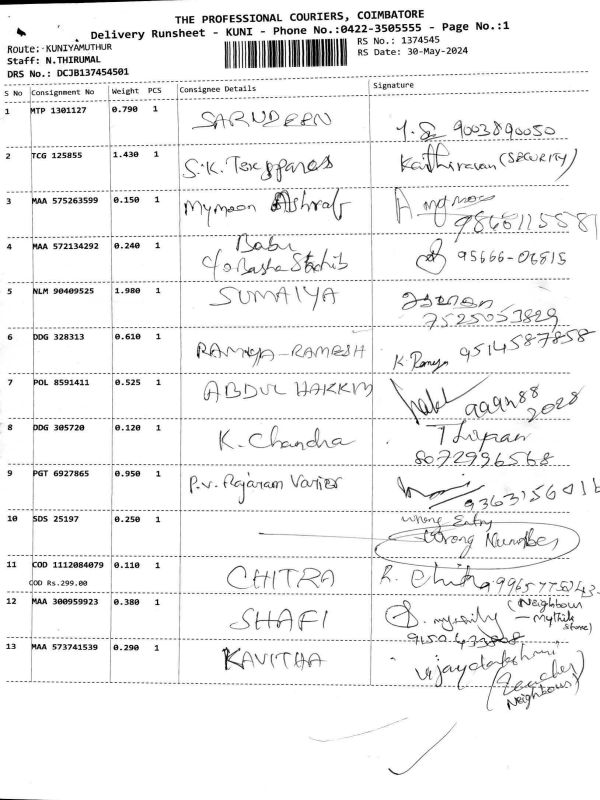 THE PROFESSIONAL COURIERS, COIMBATORE
Delivery Runsheet - KUNI - Phone No.:0422-3505555 - Page No.:1
Route: KUNIYAMUTHUR
RS No.: 1374545
Staff: N.THIRUMAL
RS Date: 30-May-2024
DRS No.: DCJB137454501
S No Consignment No Weight PCS Consignee Details Signature
1 MTP 1301127 0.790 1 SARUDEEN 9003890050
2 TCG 125855 1.430 1 S.K. (SECURITY)
3 MAA 575263599 0.150 1 Mymoon Ashraf
9866115581
4 MAA 572134292 0.240 1 Babu 95666-06815
c/o Basha
5 NLM 90409525 1.980 1 SUMAIYA
7525053829
6 DDG 328313 0.610 1 RAMYA-RAMESH K. 9514587858
7 POL 8591411 0.525 1 ABDUL HAKKIM
2028
8 DDG 305720 0.120 1 K. Chandra
8072996568
9 PGT 6927865 0.950 1 P.V. Rajaram Varier
10 SDS 25197 0.250 1 Wrong Entry
Wrong Number
11 COD 1112084079 0.110 1 CHITRA R. Chitra
COD Rs.299.00
12 MAA 300959923 0.380 1 SHAFI (Neighbour
- Mythili
Store)
13 MAA 573741539 0.290 1 KAVITHA Vijayalakshmi
(Teacher
Neighbour)